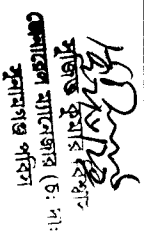 সুজিত কুমার বিশ্বাস
জেনারেল ম্যানেজার (চ: দা:
সুনামগঞ্জ পবিস